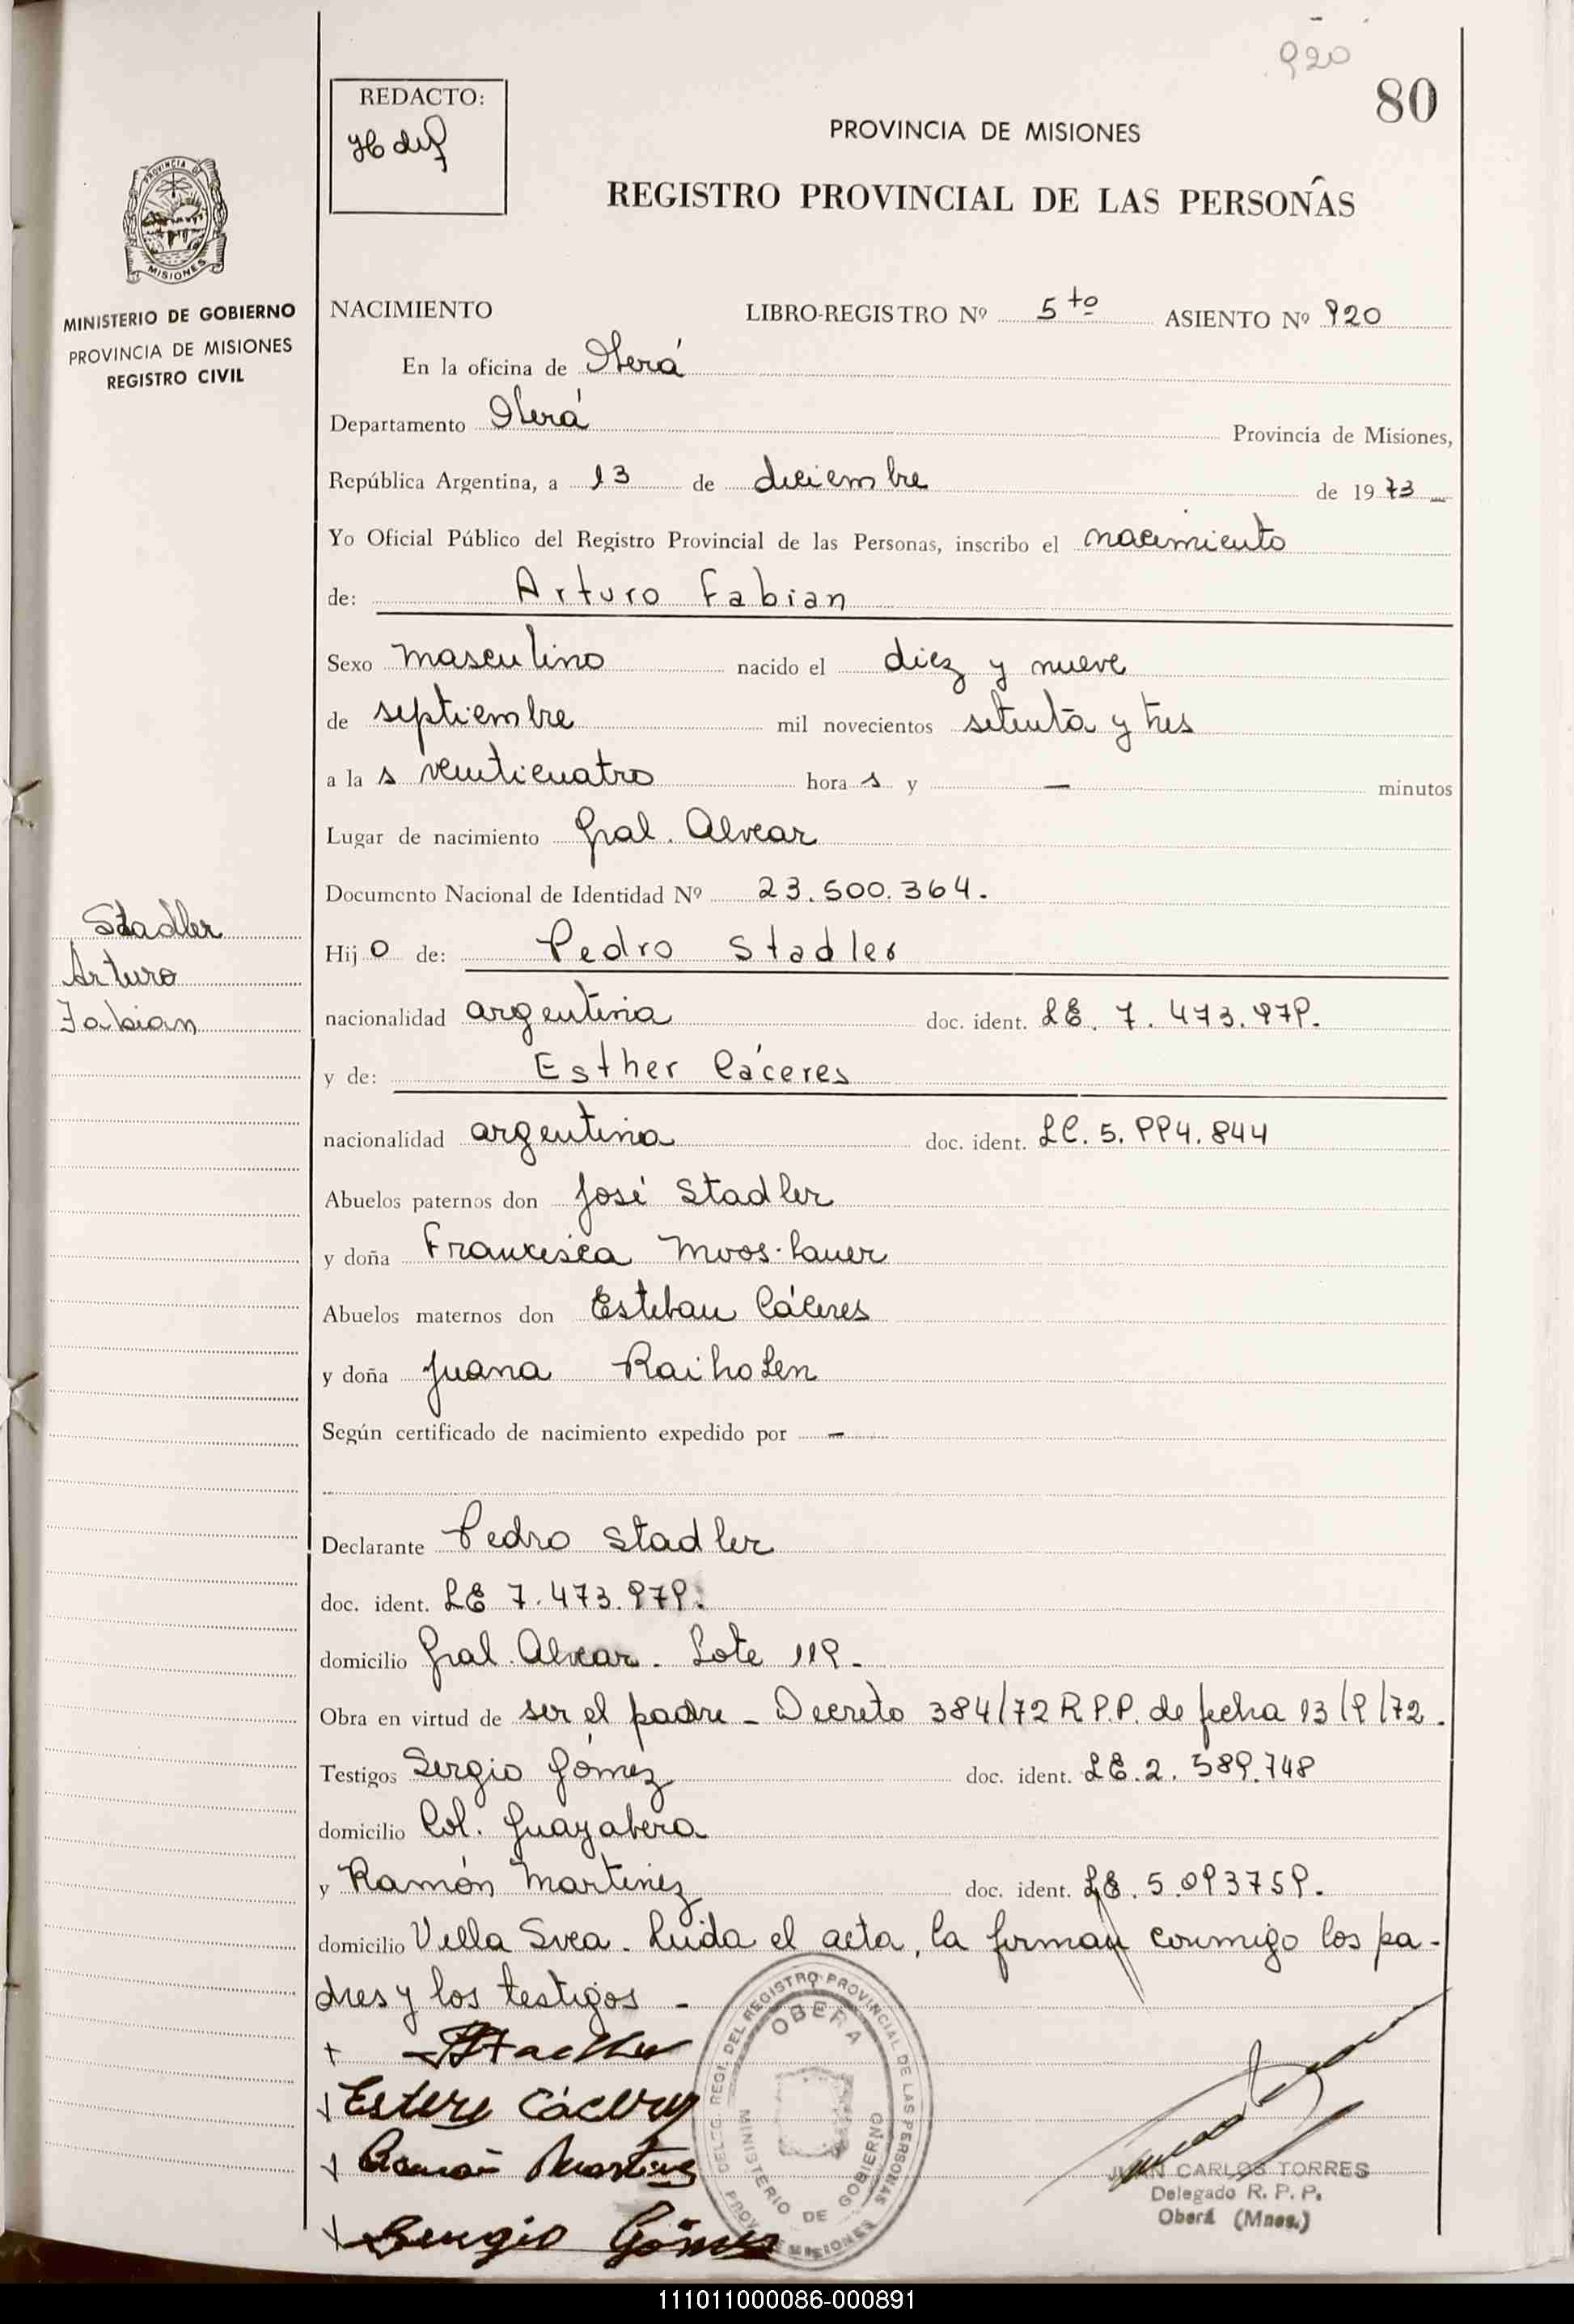 920
80
REDACTO:
PROVINCIA DE MISIONES
REGISTRO PROVINCIAL DE LAS PERSONAS
PROVINCIA DE
MISIONES
MINISTERIO DE GOBIERNO
PROVINCIA DE MISIONES
REGISTRO CIVIL
NACIMIENTO LIBRO-REGISTRO Nº 5to ASIENTO Nº 920
En la oficina de Oberá
Departamento Oberá Provincia de Misiones,
República Argentina, a 13 de diciembre de 1973
Yo Oficial Público del Registro Provincial de las Personas, inscribo el nacimiento
de: Arturo Fabian
Sexo masculino nacido el diez y nueve
de septiembre mil novecientos setenta y tres
a las veinticuatro horas y — minutos
Lugar de nacimiento Gral. Alvear
Documento Nacional de Identidad Nº 23.500.364.
Stadler
Arturo
Fabian
Hijo de: Pedro Stadler
nacionalidad argentina doc. ident. LE. 7.473.979.
y de: Esther Cáceres
nacionalidad argentina doc. ident. LC. 5.994.844
Abuelos paternos don José Stadler
y doña Francisca Moos-bauer
Abuelos maternos don Esteban Cáceres
y doña Juana
Según certificado de nacimiento expedido por —
Declarante Pedro Stadler
doc. ident. LE 7.473.979.
domicilio Gral. Alvear. Lote 119.
Obra en virtud de ser el padre - Decreto 384/72 R.P.P. de fecha 13/9/72.
Testigos Sergio Gómez doc. ident. LE.2.589.748
domicilio Col. Guayabera
y Ramón Martinez doc. ident. LE.5.093759.
domicilio Villa Svea. Leida el acta, la firman conmigo los pa-
dres y los testigos -
PStadler
Ester Cácery
Ramón Martinez
Sergio Gómez
DELEG. REGI. DEL REGISTRO PROVINCIAL DE LAS PERSONAS
OBERA
MINISTERIO DE GOBIERNO
PROV. DE MISIONES
JUAN CARLOS TORRES
Delegado R. P. P.
Oberá (Mnes.)
111011000086-000891